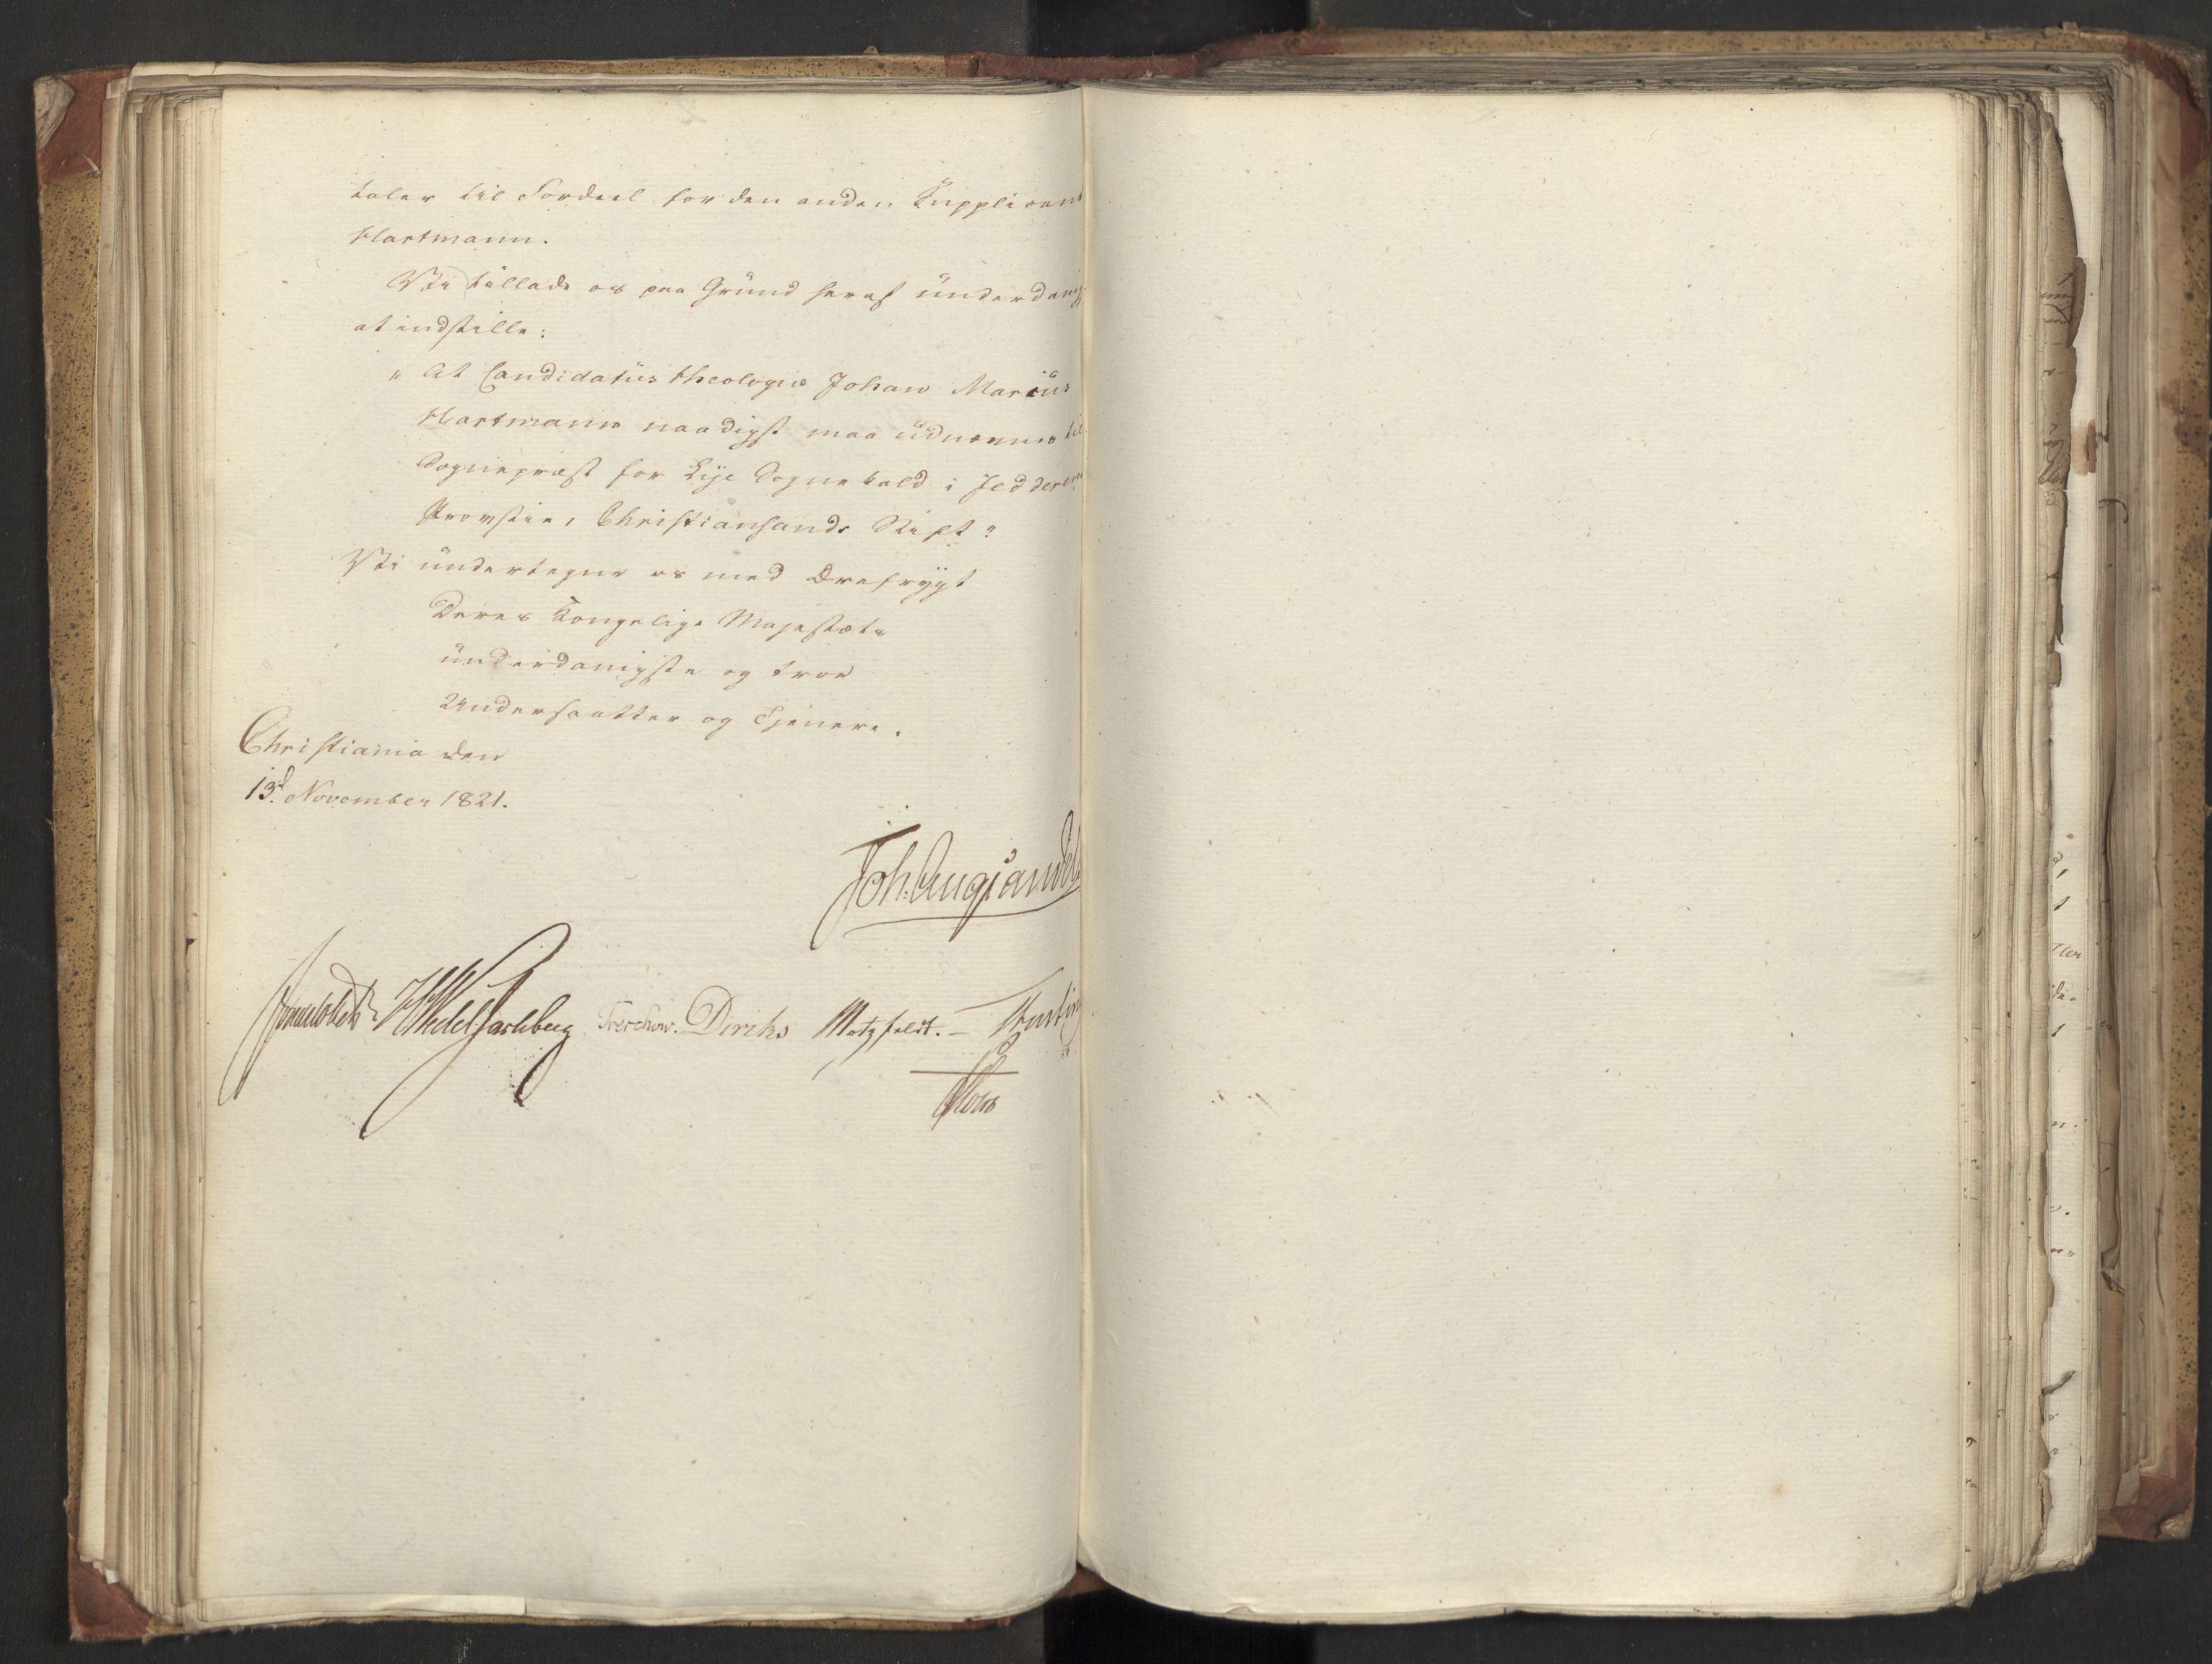 taler til Fordeel for den anden Supplicant
Hartmann.
Vi tillade os paa Grund heraf underdanigst
at indstille:
" At Candidatus theologiæ Johan Marius
Hartmann naadigst maa udnævnes til
Sognepræst for Lye Sognekald i Jedderens
Provstie, Christiansands Stift "
Vi undertegne os med Ærefrygt
Deres Kongelige Majestæts
underdanigste og troe
Undersaatter og Tjenere.
Christiania den
13d November 1821.
Joh: Aug: Sandels
Sommerhielm HWedel Jarlsberg Treschow. Diriks Motzfeldt. Fasting
Holst